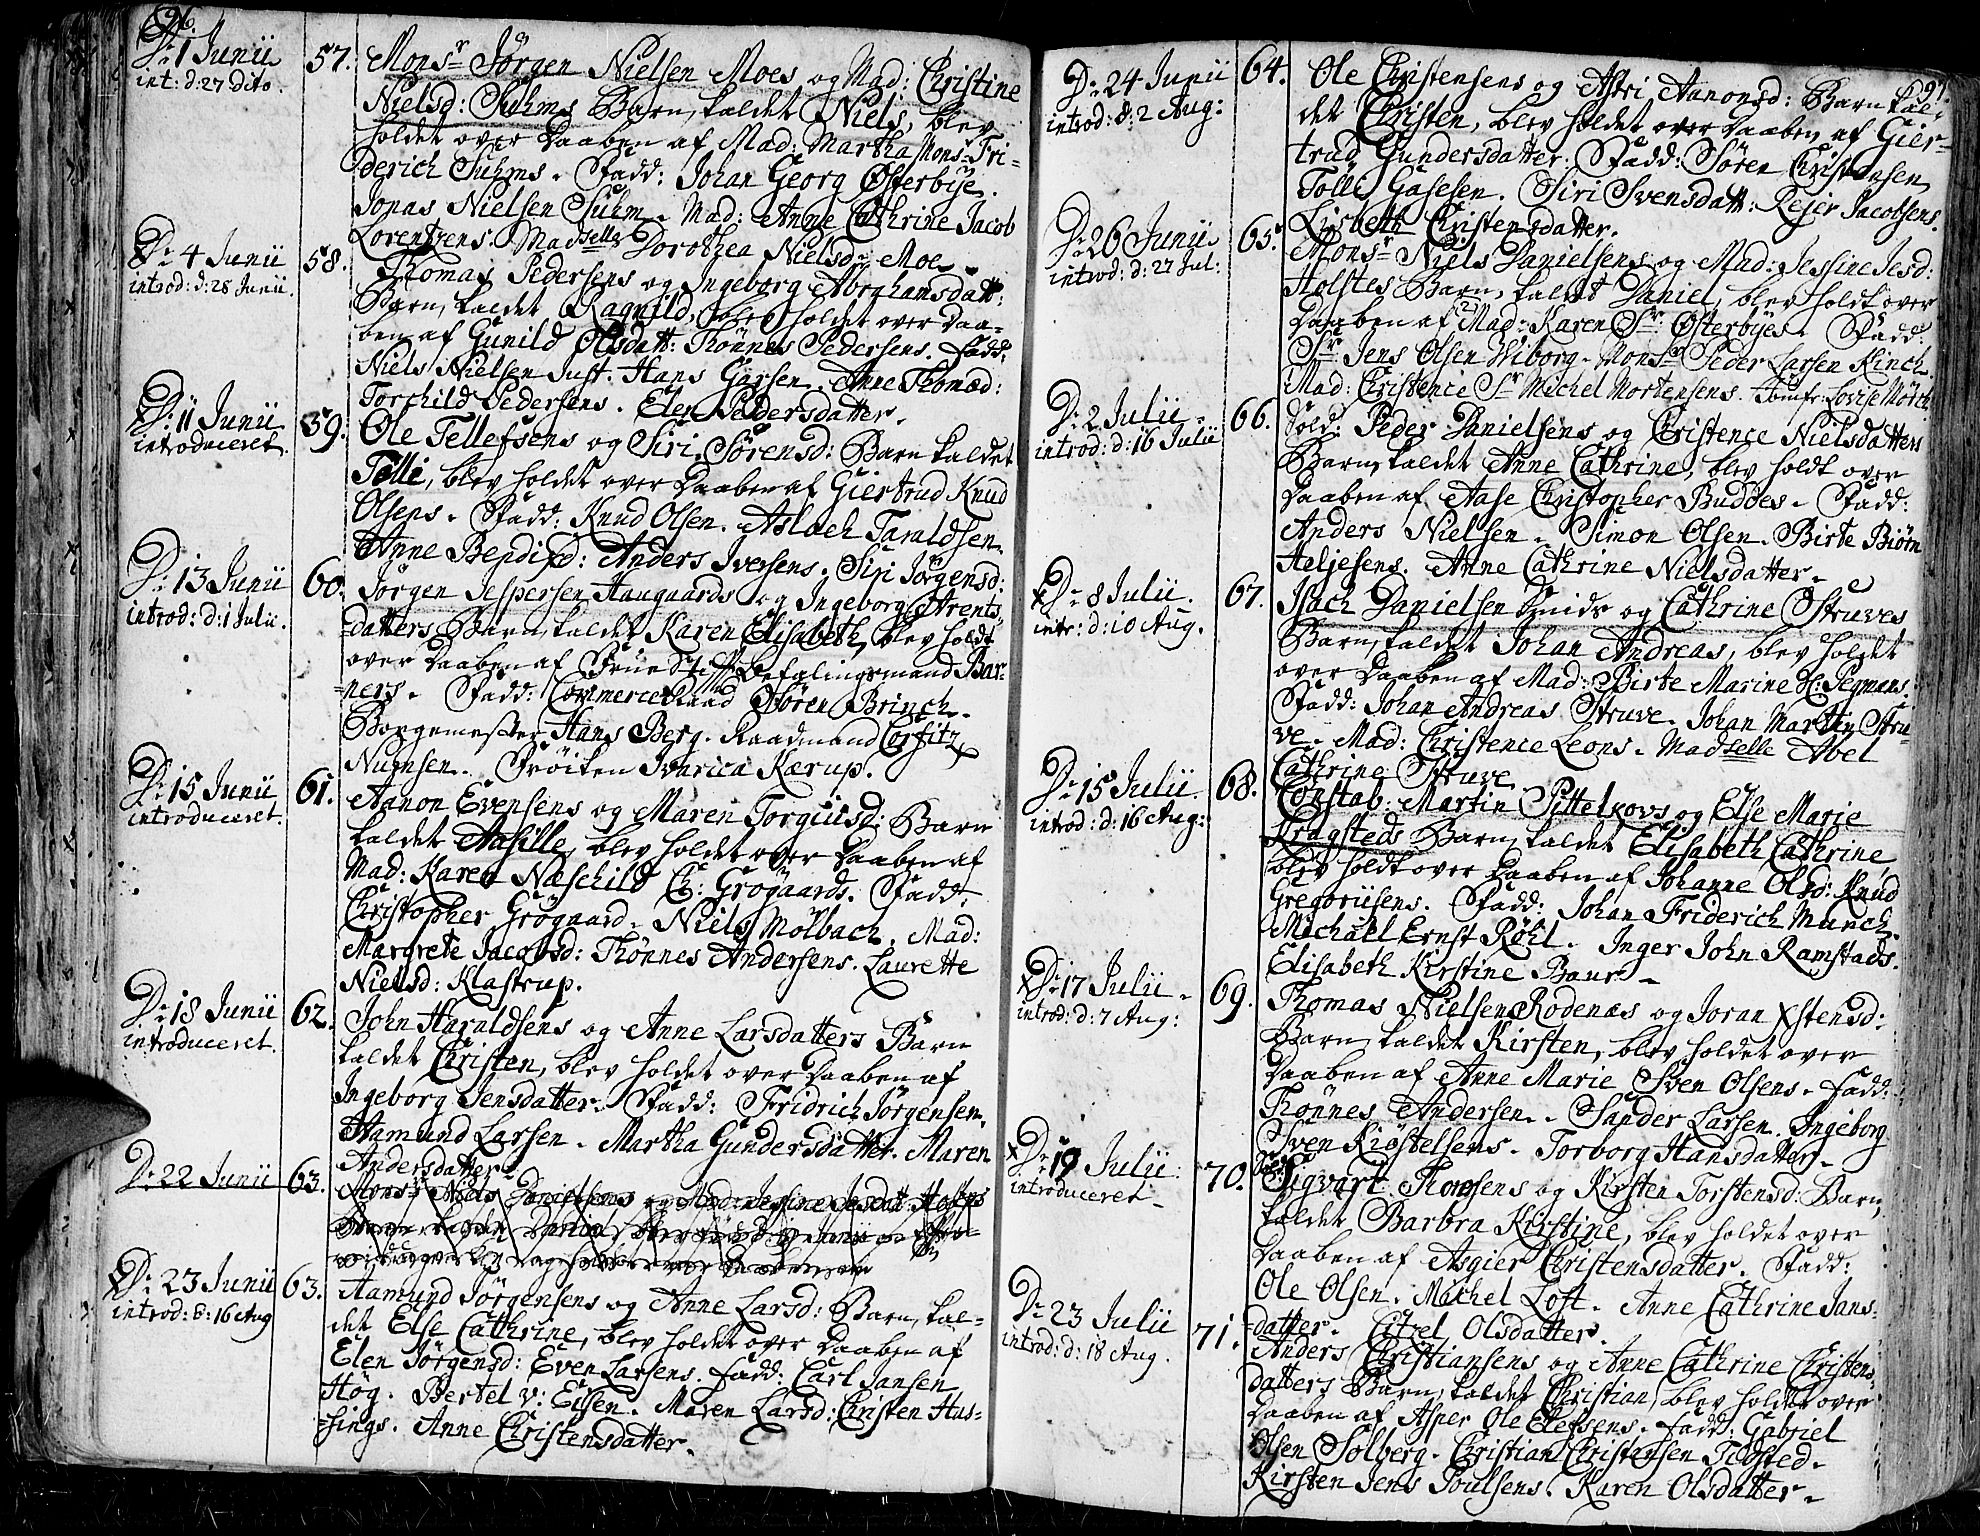 96.
D: 1 Junii
int: d: 27 dito.
57. Monsr Jörgen Nielsen Moes og Mad: Christine
Nielsd: Suhms Barn, kaldet Niels, blev
holdet over Daaben af Mad: Martha Monsr Fri-
derich Suhms. Fadd: Johan Georg Østerbye.
Jonas Nielsen Suhm. Mad: Anne Cathrine Jacob
Lorentzens. Madselle Dorothea Nielsdr Moe.
D: 4 Junii
introd: d: 28 Junii.
58. Thomas Pedersens og Ingeborg Abrahamsdatt:
Barn, kaldet Ragnild, blev holdet over Daa-
ben af Gunild Olsdatt: Thönnes Pedersens. Fadd:
Niels Nielsen Just. Hans Garsen. Anne Thomæd:
Torchild Pedersens. Elen Pedersdatter.
D: 11 Junii
introduceret.
59. Ole Tellefsens og Siri Sörensd: Barn kaldet
Tolli, blev holdet over Daaben af Giertrud Knud
Olsens. Fadd: Knud Olsen. Aslach Taraldsen.
Anne Bendixd: Anders Iversens. Siri Jörgensd:
D: 13 Junii
introd: d: 1 Julii.
60. Jörgen Jespersen Hauguards og Ingeborg Arents-
datters Barn, kaldet Karen Elisabeth, blev holdt
over Daaben af Frue Stift Befalingsmand Bar-
ners. Fadd: CommerceRaad Sören Brinch.
Borgemester Hans Berg. Raadmand Corfitz
Numsen. Fröiken Ivarica Kærup.
D: 15 Junii
introduceret.
61. Aanon Evensens og Maren Torgiusd: Barn
kaldet Aasille, blev holdet over Daaben af
Mad: Karen Næschild C: Grögaards. Fadd:
Christopher Grögaard. Niels Mölbach. Mad:
Margrete Jacobsd: Thönnes Andersens. Laurette
Nielsd: Klastrup.
D: 18 Junii
introduceret.
62. John Haraldsens og Anne Larsdatters Barn
kaldet Christen, blev holdet over Daaben af
Ingeborg Jensdatter. Fadd: Fridrich Jörgensen.
Aamund Larsen. Martha Gundersdatter. Maren
Andersdatter.
D: 22 Junii
63. Monsr Niels Danielsens og Mad: Jessine Jesdatt: Holstes
Barn kaldet Daniel, blev
D: 23 Junii
introd: d: 16 Aug
63. Aamund Jörgensens og Anne Larsd: Barn, kal-
det Else Cathrine, blev holdet over Daaben af
Elen Jörgensd: Even Larsens. Fadd: Carl Jansen
Høg. Bertel v: Eissen. Maren Larsd: Christen Hus-
sings. Anne Christensdatter.
97.
D: 24 Junii
introd: d: 2 Aug:
64. Ole Christensens og Astri Aanonsd: Barn kal-
det Christen, blev holdet over Daaben af Gier-
trud Gundersdatter. Fadd: Sören Christensen
Tolli Gasesen. Siri Svensdatt: Rejer Jacobsens.
Lisbeth Christensdatter.
D: 26 Junii
introd: d: 27 Jul:
65. Monsr Niels Danielsens og Mad: Jessine Jesd:
Holstes Barn, kaldet Daniel, blev holdt over
Daaben af Mad: Karen Sr: Østerbyes. Fadd:
Sr: Jens Olsen Wiborg. Monsr Peder Larsen Kinch.
Mad: Christence Sr Michel Mortensens. Jomfr: Lovise Mörch.
D: 2 Julii
introd: d: 16 Julii
66. Sold: Peder Danielsens og Christence Nielsdatters
Barn, kaldet Anne Cathrine, blev holdt over
Daaben af Aase Christopher Buddes. Fadd:
Anders Nielsen. Simon Olsen. Birte Biörn
Aeljesens. Anne Cathrine Nielsdatter.
D: 8 Julii.
intr: d: 10 Aug.
67. Isach Danielsen Smids og Cathrine Struves
Barn, kaldet Johan Andreas, blev holdet
over Daaben af Mad: Birte Marine H: Tegmans.
Fadd: Johan Andreas Struve. Johan Martin Stru-
ve. Mad: Christence Leons. Madselle Abel
Cathrine Struve.
D: 15 Julii
introd: d: 16 Aug:
68. Constab: Martin Pittelkovs og Else Marie
Kragsteds Barn, kaldet Elisabeth Cathrine,
blev holdt over Daaben af Johanne Olsd: Knud
Gregoriisens. Fadd: Johan Friderich Munch.
Michael Ernst Röhl. Inger John Ramstads.
Elisabeth Kirstine Baur.
D: 17 Julii.
introd: d: 7 Aug:
69. Thomas Nielsen Rodenæs og Joran Xstensd:
Barn, kaldet Kirsten, blev holdet over
Daaben af Anne Marie Sven Olsens. Fadd:
Thönnes Andersen. Sander Larsen. Ingeborg
Sven Kiöstelsens. Torborg Hansdatter.
D: 19 Julii.
introduceret
70. Sold: Sigvart Thomsens og Kirsten Torstensd: Barn,
kaldet Barbra Kirstine, blev holdet over
Daaben af Asgier Christensdatter. Fadd:
Ole Olsen. Michel Loft. Anne Cathrine Jans-
datter. Citzel Olsdatter.
D: 23 Julii
introd: d: 18 Aug.
71. Anders Christiansens og Anne Cathrine Christens-
datters Barn, kaldet Christian, blev holdet over
Daaben af Asper Ole Elefsens. Fadd: Gabriel
Olsen Solberg. Christian Christensen Tidsted.
Kirsten Jens Poulsens. Karen Olsdatter.